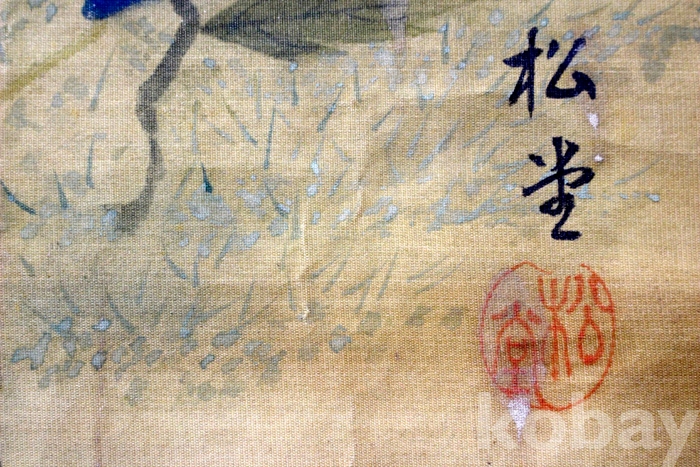 松堂
松堂
kobay